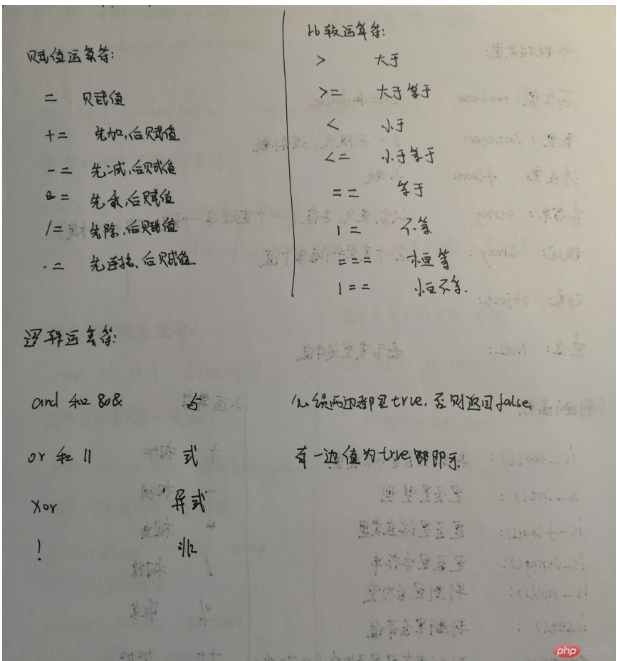 赋值运算符:
= 赋值
+= 先加,后赋值
-= 先减,后赋值
*= 先乘,后赋值
/= 先除,后赋值
.= 先连接,后赋值
比较运算符:
> 大于
>= 大于等于
< 小于
<= 小于等于
== 等于
!= 不等
=== 恒等
!== 恒不等.
逻辑运算符:
and 和 &&
必须两边都是true,否则返回false
or 和 || 或
有一边值为true 即可
xor 异或
! 非
php